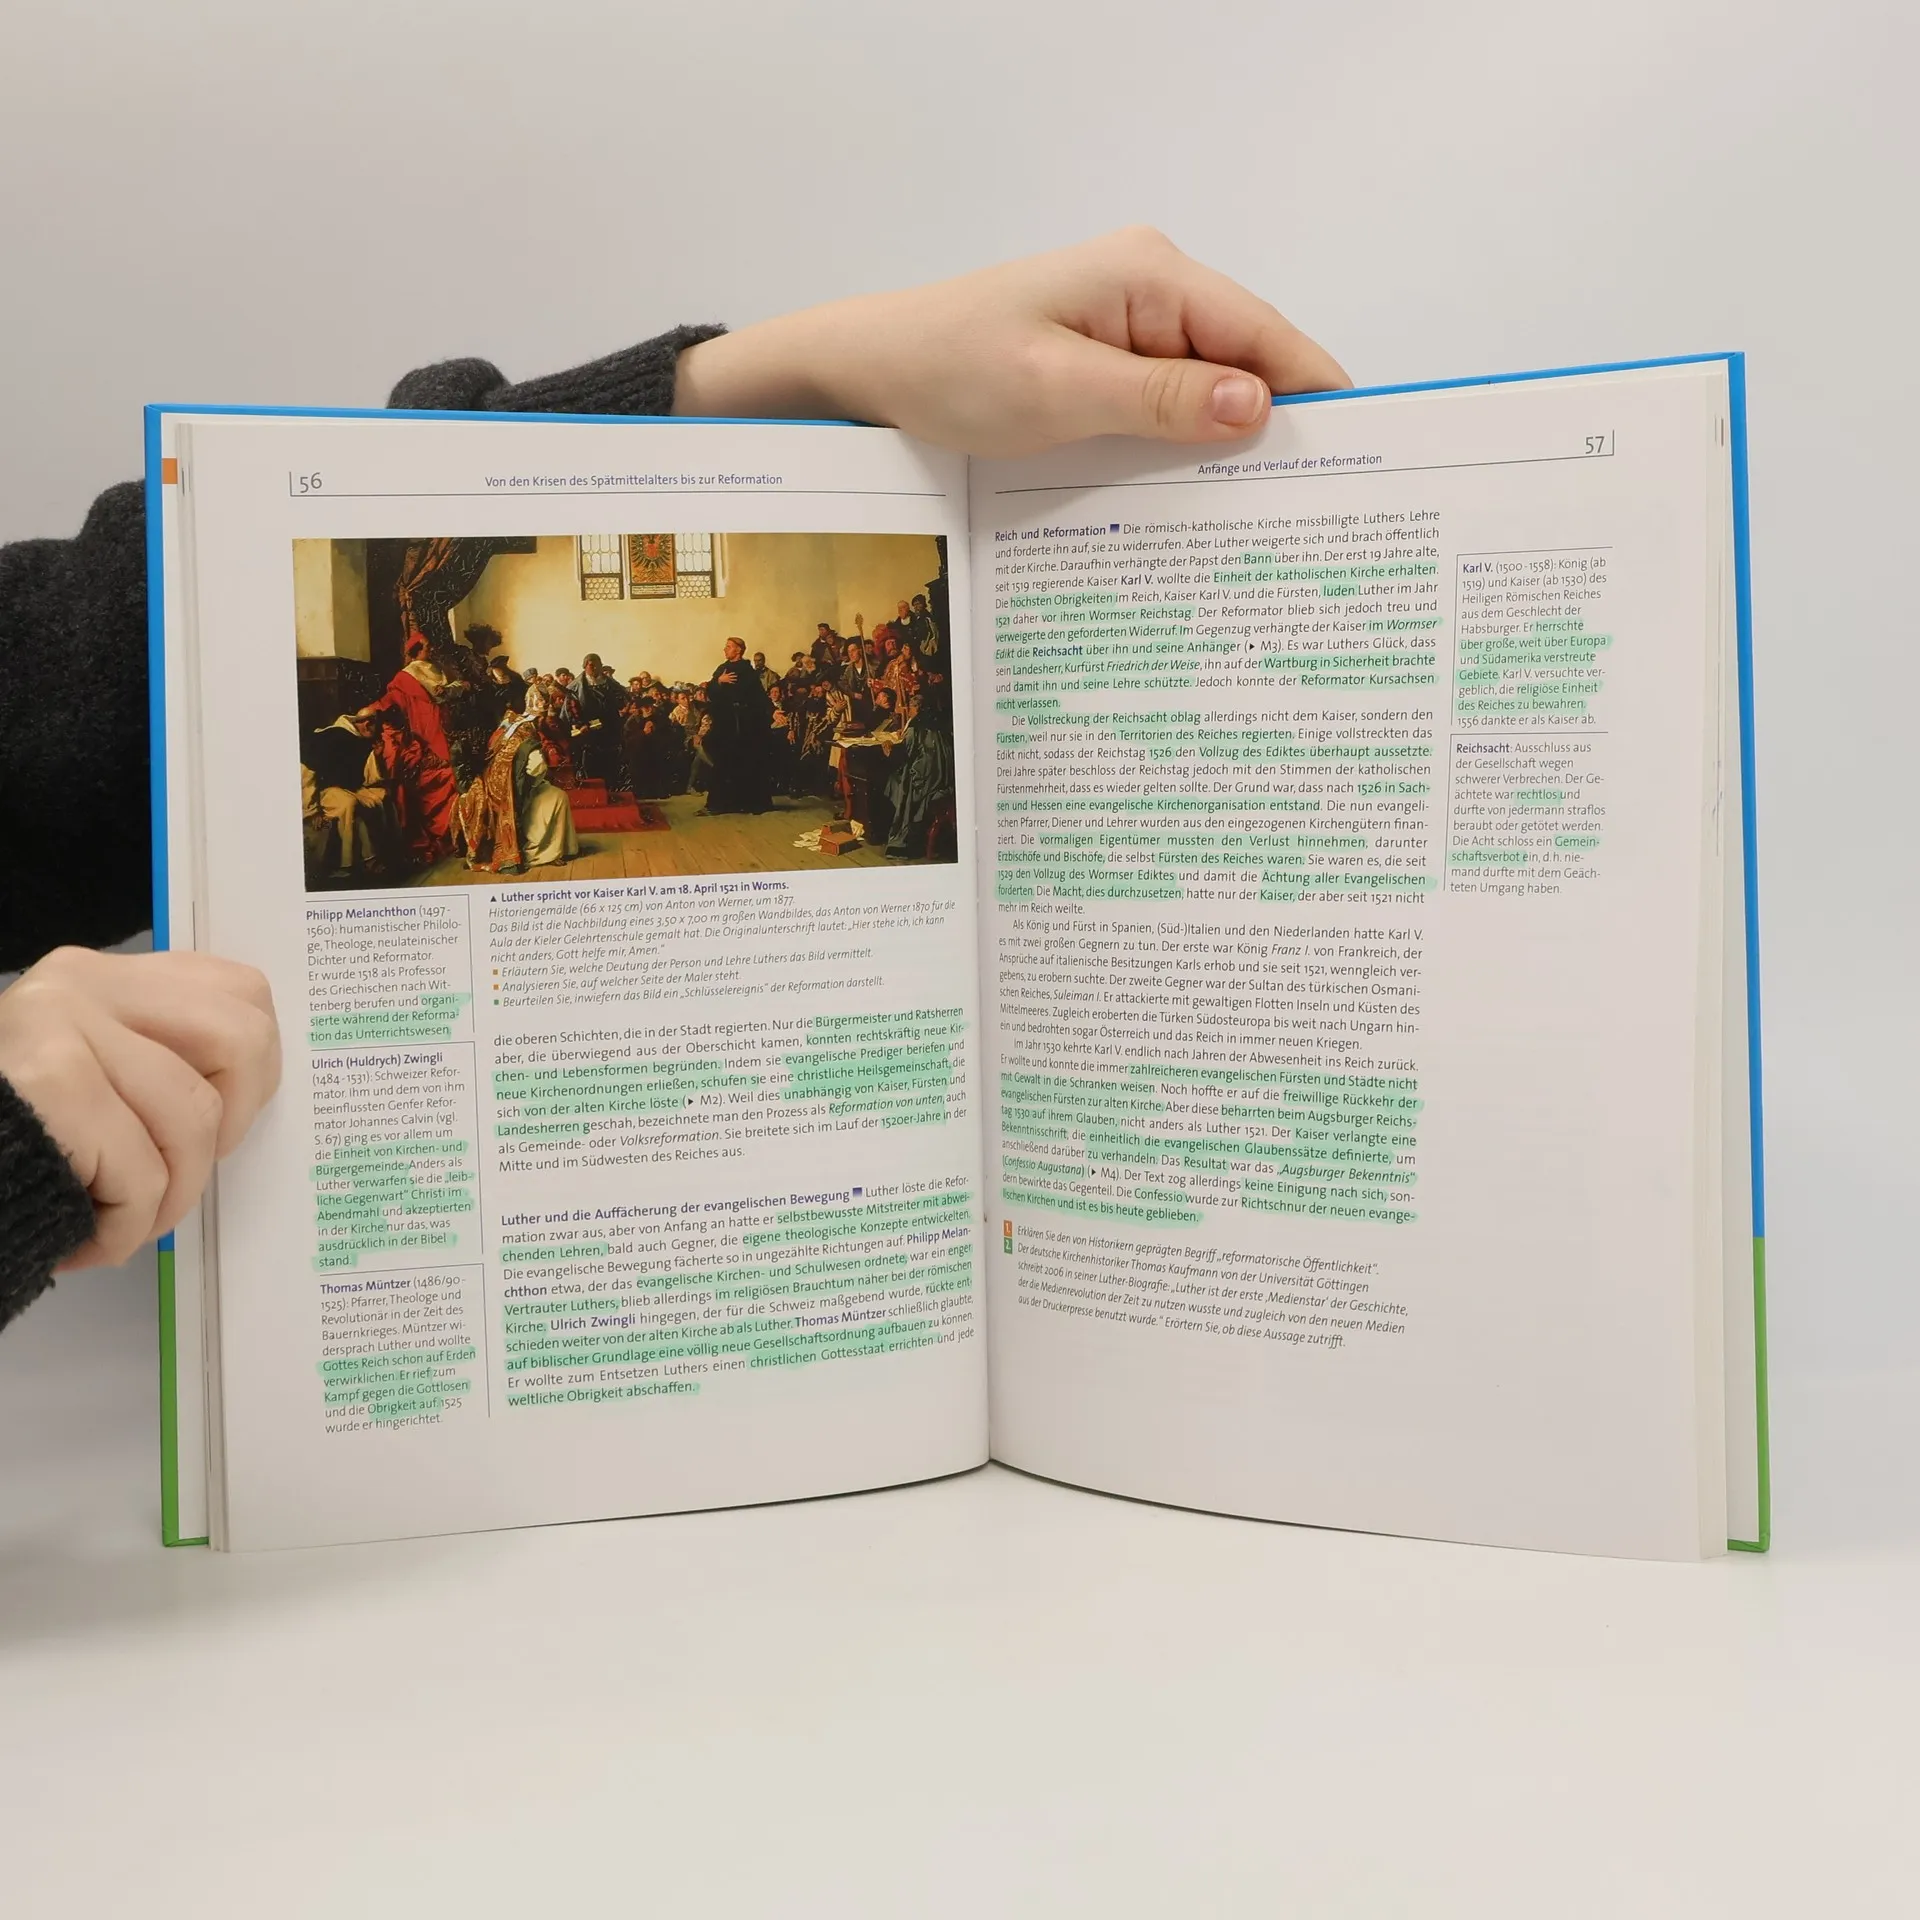 56
Von den Krisen des Spätmittelalters bis zur Reformation
▲ Luther spricht vor Kaiser Karl V. am 18. April 1521 in Worms.
Historiengemälde (66 x 125 cm) von Anton von Werner, um 1877.
Das Bild ist die Nachbildung eines 3,50 x 7,00 m großen Wandbildes, das Anton von Werner 1870 für die
Aula der Kieler Gelehrtenschule gemalt hat. Die Originalunterschrift lautet: „Hier stehe ich, ich kann
nicht anders, Gott helfe mir, Amen.“
■ Erläutern Sie, welche Deutung der Person und Lehre Luthers das Bild vermittelt.
■ Analysieren Sie, auf welcher Seite der Maler steht.
■ Beurteilen Sie, inwiefern das Bild ein „Schlüsselereignis“ der Reformation darstellt.
Philipp Melanchthon (1497-
1560): humanistischer Philolo-
ge, Theologe, neulateinischer
Dichter und Reformator.
Er wurde 1518 als Professor
des Griechischen nach Wit-
tenberg berufen und organi-
sierte während der Reforma-
tion das Unterrichtswesen.
Ulrich (Huldrych) Zwingli
(1484-1531): Schweizer Refor-
mator. Ihm und dem von ihm
beeinflussten Genfer Refor-
mator Johannes Calvin (vgl.
S. 67) ging es vor allem um
die Einheit von Kirchen- und
Bürgergemeinde. Anders als
Luther verwarfen sie die „leib-
liche Gegenwart“ Christi im
Abendmahl und akzeptierten
in der Kirche nur das, was
ausdrücklich in der Bibel
stand.
Thomas Müntzer (1486/90-
1525): Pfarrer, Theologe und
Revolutionär in der Zeit des
Bauernkrieges. Müntzer wi-
dersprach Luther und wollte
Gottes Reich schon auf Erden
verwirklichen. Er rief zum
Kampf gegen die Gottlosen
und die Obrigkeit auf. 1525
wurde er hingerichtet.
die oberen Schichten, die in der Stadt regierten. Nur die Bürgermeister und Ratsherren
aber, die überwiegend aus der Oberschicht kamen, konnten rechtskräftig neue Kir-
chen- und Lebensformen begründen. Indem sie evangelische Prediger beriefen und
neue Kirchenordnungen erließen, schufen sie eine christliche Heilsgemeinschaft, die
sich von der alten Kirche löste (▸ M2). Weil dies unabhängig von Kaiser, Fürsten und
Landesherren geschah, bezeichnete man den Prozess als Reformation von unten, auch
als Gemeinde- oder Volksreformation. Sie breitete sich im Lauf der 1520er-Jahre in der
Mitte und im Südwesten des Reiches aus.
Luther und die Auffächerung der evangelischen Bewegung ■ Luther löste die Refor-
mation zwar aus, aber von Anfang an hatte er selbstbewusste Mitstreiter mit abwei-
chenden Lehren, bald auch Gegner, die eigene theologische Konzepte entwickelten.
Die evangelische Bewegung fächerte so in ungezählte Richtungen auf. Philipp Melan-
chthon etwa, der das evangelische Kirchen- und Schulwesen ordnete, war ein enger
Vertrauter Luthers, blieb allerdings im religiösen Brauchtum näher bei der römischen
Kirche. Ulrich Zwingli hingegen, der für die Schweiz maßgebend wurde, rückte ent-
schieden weiter von der alten Kirche ab als Luther. Thomas Müntzer schließlich glaubte,
auf biblischer Grundlage eine völlig neue Gesellschaftsordnung aufbauen zu können.
Er wollte zum Entsetzen Luthers einen christlichen Gottesstaat errichten und jede
weltliche Obrigkeit abschaffen.
Anfänge und Verlauf der Reformation
57
Reich und Reformation ■ Die römisch-katholische Kirche missbilligte Luthers Lehre
und forderte ihn auf, sie zu widerrufen. Aber Luther weigerte sich und brach öffentlich
mit der Kirche. Daraufhin verhängte der Papst den Bann über ihn. Der erst 19 Jahre alte,
seit 1519 regierende Kaiser Karl V. wollte die Einheit der katholischen Kirche erhalten.
Die höchsten Obrigkeiten im Reich, Kaiser Karl V. und die Fürsten, luden Luther im Jahr
1521 daher vor ihren Wormser Reichstag. Der Reformator blieb sich jedoch treu und
verweigerte den geforderten Widerruf. Im Gegenzug verhängte der Kaiser im Wormser
Edikt die Reichsacht über ihn und seine Anhänger (▸ M3). Es war Luthers Glück, dass
sein Landesherr, Kurfürst Friedrich der Weise, ihn auf der Wartburg in Sicherheit brachte
und damit ihn und seine Lehre schützte. Jedoch konnte der Reformator Kursachsen
nicht verlassen.
Die Vollstreckung der Reichsacht oblag allerdings nicht dem Kaiser, sondern den
Fürsten, weil nur sie in den Territorien des Reiches regierten. Einige vollstreckten das
Edikt nicht, sodass der Reichstag 1526 den Vollzug des Ediktes überhaupt aussetzte.
Drei Jahre später beschloss der Reichstag jedoch mit den Stimmen der katholischen
Fürstenmehrheit, dass es wieder gelten sollte. Der Grund war, dass nach 1526 in Sach-
sen und Hessen eine evangelische Kirchenorganisation entstand. Die nun evangeli-
schen Pfarrer, Diener und Lehrer wurden aus den eingezogenen Kirchengütern finan-
ziert. Die vormaligen Eigentümer mussten den Verlust hinnehmen, darunter
Erzbischöfe und Bischöfe, die selbst Fürsten des Reiches waren. Sie waren es, die seit
1529 den Vollzug des Wormser Ediktes und damit die Ächtung aller Evangelischen
forderten. Die Macht, dies durchzusetzen, hatte nur der Kaiser, der aber seit 1521 nicht
mehr im Reich weilte.
Als König und Fürst in Spanien, (Süd-)Italien und den Niederlanden hatte Karl V.
es mit zwei großen Gegnern zu tun. Der erste war König Franz I. von Frankreich, der
Ansprüche auf italienische Besitzungen Karls erhob und sie seit 1521, wenngleich ver-
gebens, zu erobern suchte. Der zweite Gegner war der Sultan des türkischen Osmani-
schen Reiches, Suleiman I. Er attackierte mit gewaltigen Flotten Inseln und Küsten des
Mittelmeeres. Zugleich eroberten die Türken Südosteuropa bis weit nach Ungarn hin-
ein und bedrohten sogar Österreich und das Reich in immer neuen Kriegen.
Im Jahr 1530 kehrte Karl V. endlich nach Jahren der Abwesenheit ins Reich zurück.
Er wollte und konnte die immer zahlreicheren evangelischen Fürsten und Städte nicht
mit Gewalt in die Schranken weisen. Noch hoffte er auf die freiwillige Rückkehr der
evangelischen Fürsten zur alten Kirche. Aber diese beharrten beim Augsburger Reichs-
tag 1530 auf ihrem Glauben, nicht anders als Luther 1521. Der Kaiser verlangte eine
Bekenntnisschrift, die einheitlich die evangelischen Glaubenssätze definierte, um
anschließend darüber zu verhandeln. Das Resultat war das „Augsburger Bekenntnis“
(Confessio Augustana) (▸ M4). Der Text zog allerdings keine Einigung nach sich, son-
dern bewirkte das Gegenteil. Die Confessio wurde zur Richtschnur der neuen evange-
lischen Kirchen und ist es bis heute geblieben.
1. Erklären Sie den von Historikern geprägten Begriff „reformatorische Öffentlichkeit“.
2. Der deutsche Kirchenhistoriker Thomas Kaufmann von der Universität Göttingen
schreibt 2006 in seiner Luther-Biografie: „Luther ist der erste ‚Medienstar‘ der Geschichte,
der die Medienrevolution der Zeit zu nutzen wusste und zugleich von den neuen Medien
aus der Druckerpresse benutzt wurde.“ Erörtern Sie, ob diese Aussage zutrifft.
Karl V. (1500-1558): König (ab
1519) und Kaiser (ab 1530) des
Heiligen Römischen Reiches
aus dem Geschlecht der
Habsburger. Er herrschte
über große, weit über Europa
und Südamerika verstreute
Gebiete. Karl V. versuchte ver-
geblich, die religiöse Einheit
des Reiches zu bewahren.
1556 dankte er als Kaiser ab.
Reichsacht: Ausschluss aus
der Gesellschaft wegen
schwerer Verbrechen. Der Ge-
ächtete war rechtlos und
durfte von jedermann straflos
beraubt oder getötet werden.
Die Acht schloss ein Gemein-
schaftsverbot ein, d.h. nie-
mand durfte mit dem Geäch-
teten Umgang haben.